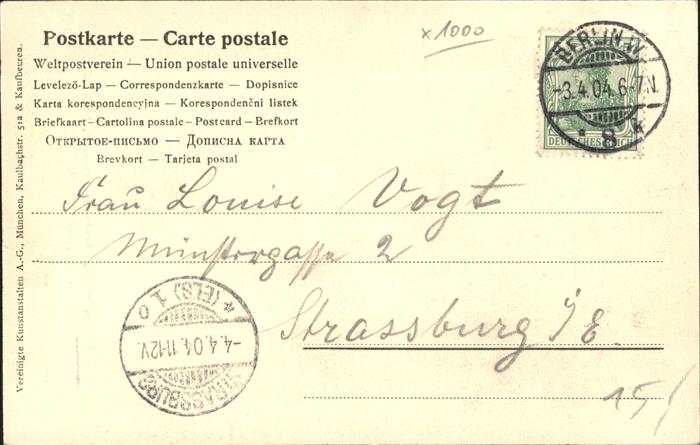 Postkarte — Carte postale
Weltpostverein — Union postale universelle
Levelező-Lap — Correspondenzkarte — Dopisnice
Karta korespondencyjna — Korespondenční listek
Briefkaart – Cartolina postale – Postcard – Brefkort
Открытое-письмо — Дописна карта
Brevkort — Tarjeta postal
x 1000
BERLIN W
-3.4.04.6-7N.
* 8 k
DEUTSCHES REICH
Frau Louise Vogt
Münstergasse 2
Strassburg i/E.
STRASSBURG
-4.4.04.11-12V.
* (ELS) 1 o
15/
Vereinigte Kunstanstalten A.-G., München, Kaulbachstr. 51a & Kaufbeuren.